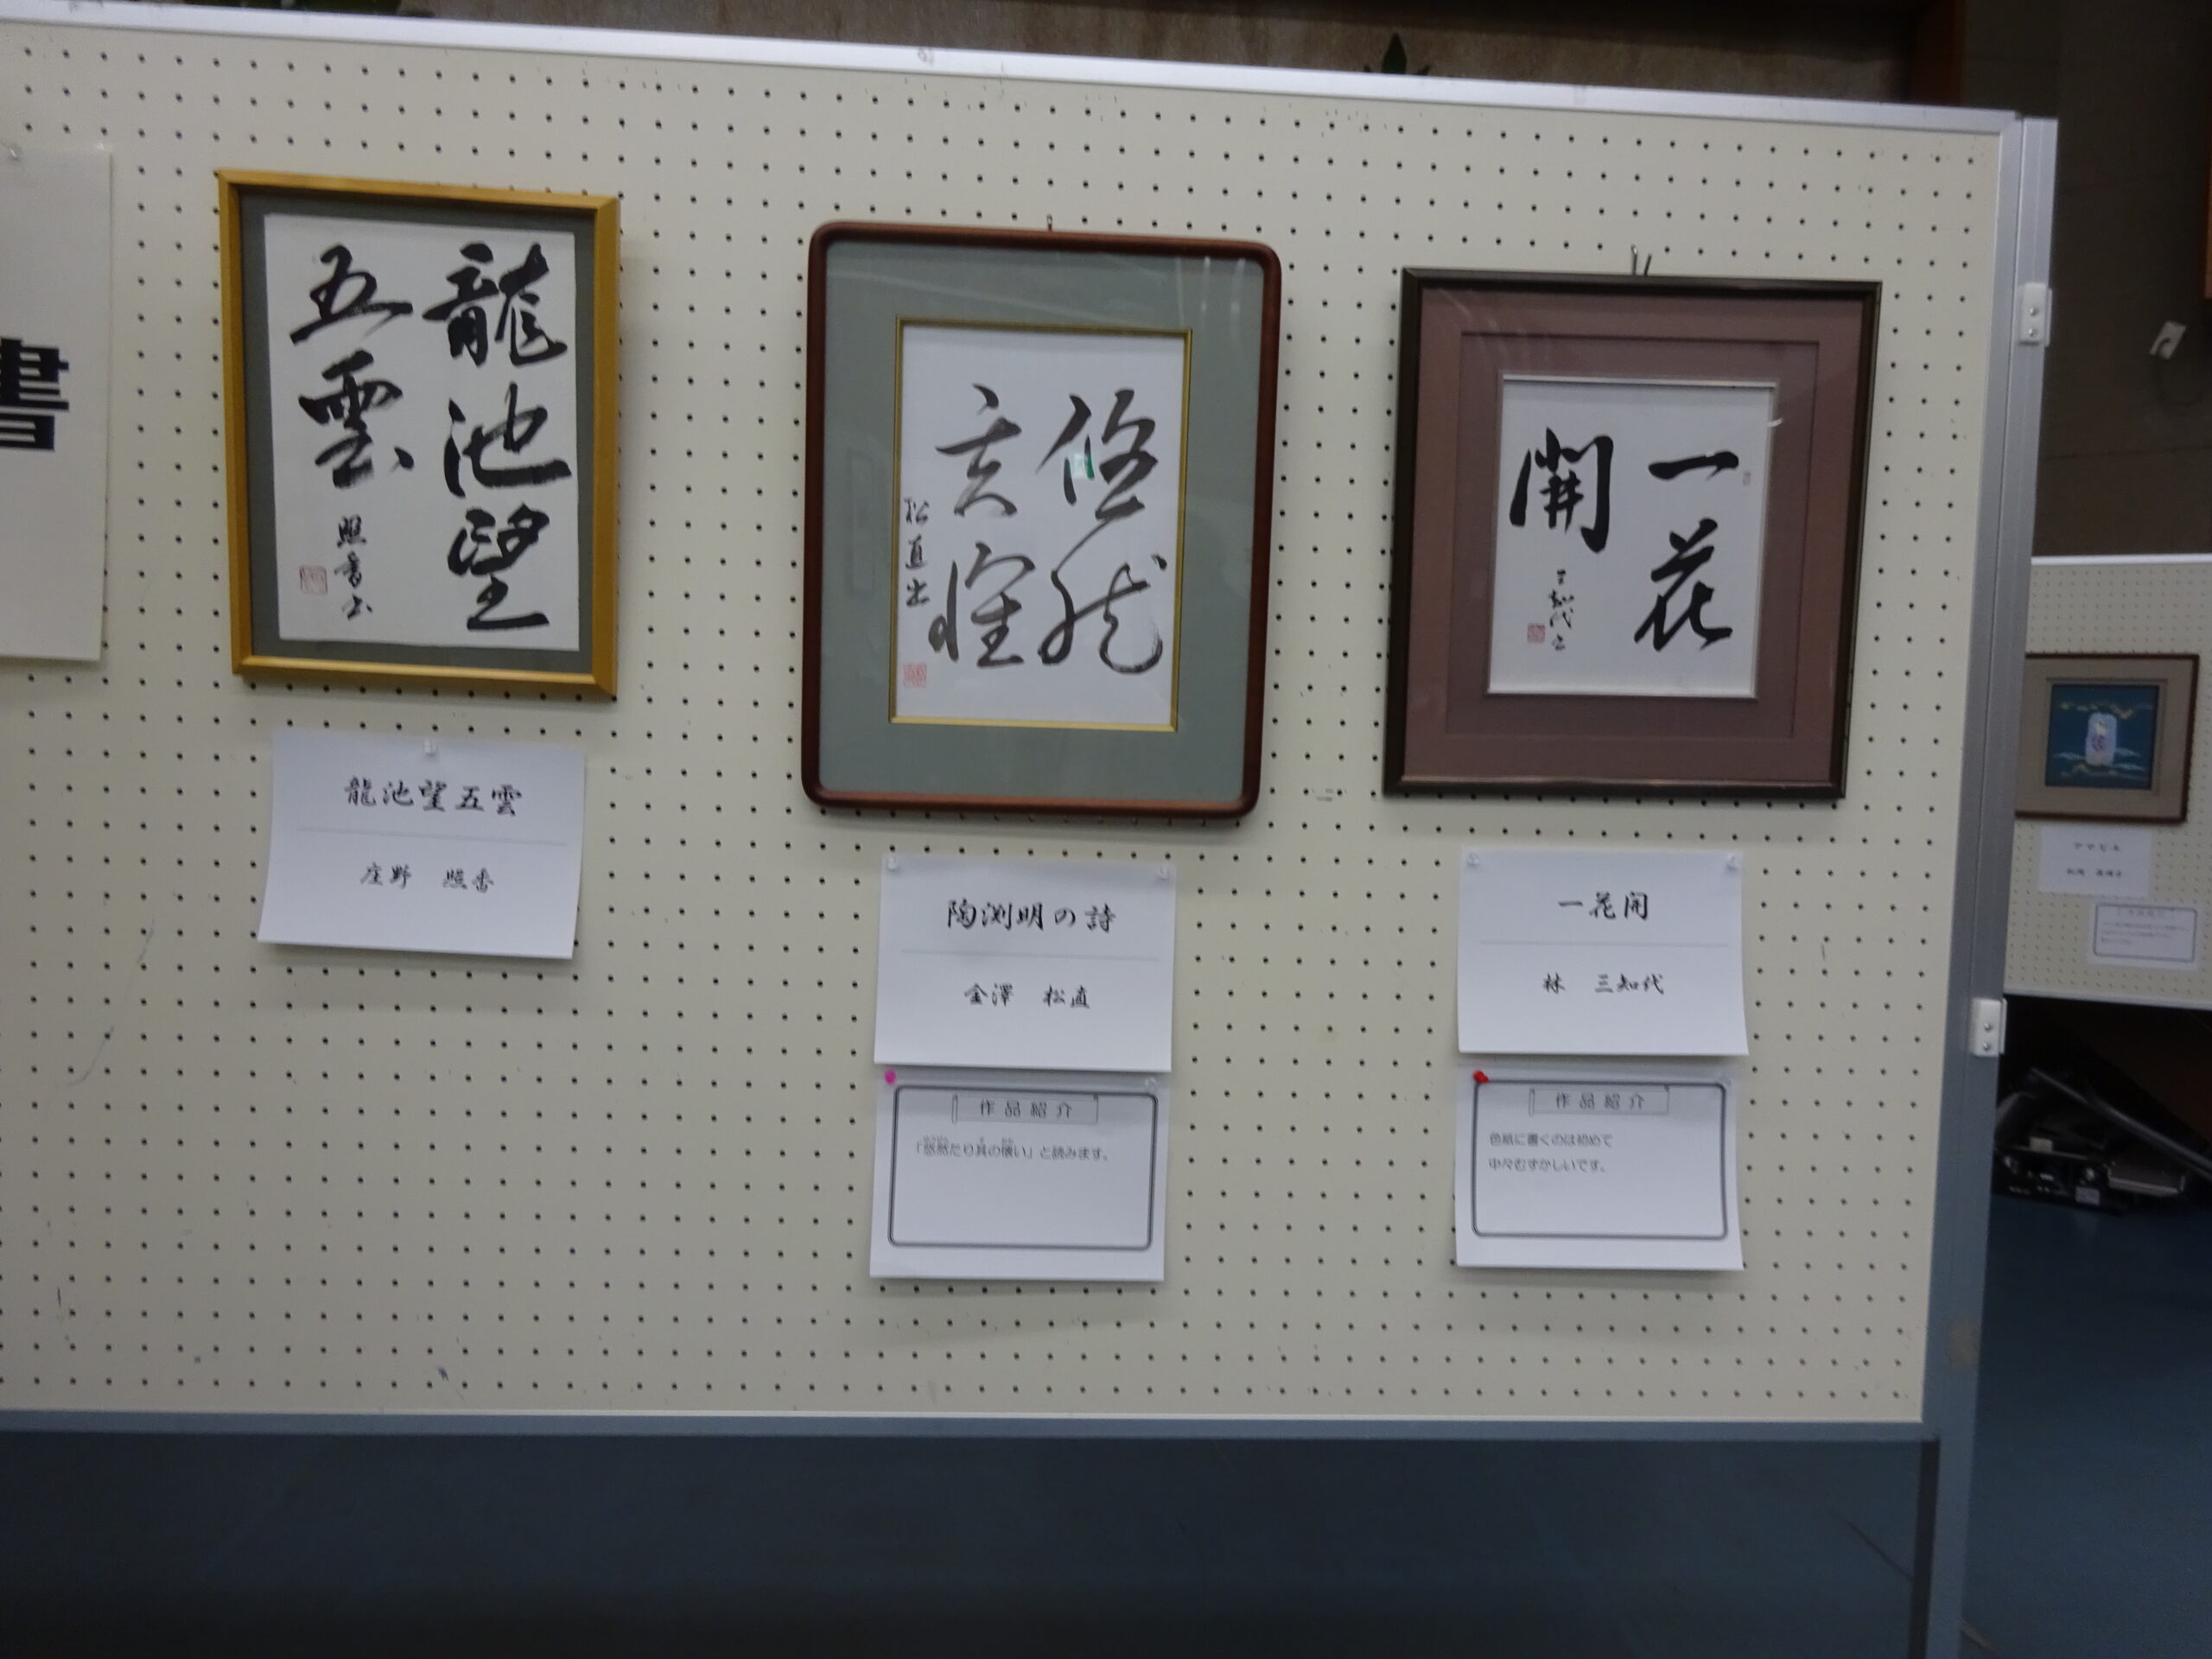 書
龍池望
五雲
照香書
龍池望五雲
庄野 照香
悠然
其懐
松直書
陶渕明の詩
金澤 松直
作品紹介
「悠然たり其の懐い」と読みます。
一花
開
三知代書
一花開
林 三知代
作品紹介
色紙に書くのは初めて
中々むずかしいです。
アマビエ